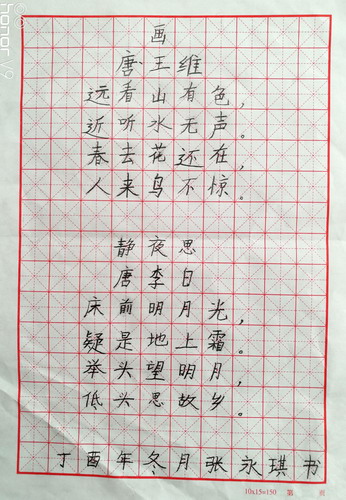 画
唐王维
远看山有色，
近听水无声。
春去花还在，
人来鸟不惊。
静夜思
唐李白
床前明月光，
疑是地上霜。
举头望明月，
低头思故乡。
丁酉年冬月张永琪书
10x15=150 第 页
honor V9